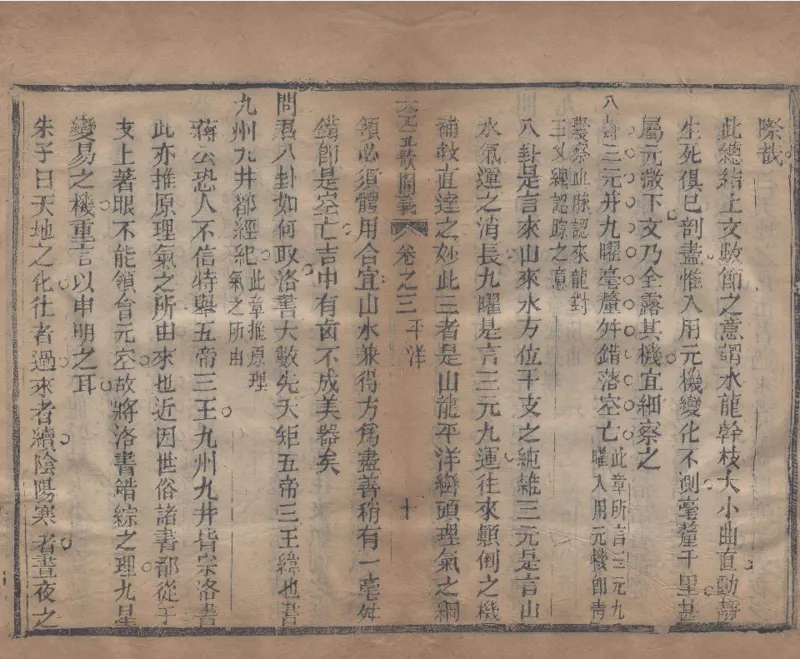 際哉
此總結上文數節之意謂水龍幹枝大小曲直動靜
生死俱已剖盡惟入用元機變化不測毫釐千里甚
屬元微下文乃全露其機宜細察之
八卦三元并九曜毫釐舛錯落空亡此章所言三元九
曜入用元機即靑
囊察血脉認來龍對
三义細認踪之意
八卦是言來山來水方位干支之純雜三元是言山
水氣運之消長九曜是言三元九運往來顛倒之機
補救直達之妙此三者是山龍平洋巒頭理氣之綱
天元五歌闡義 卷之三 平洋 十
領必須體用合宜山水兼得方爲盡善稍有一毫舛
錯卽是空亡吉中有凶不成美器矣
問君八卦如何取洛書大數先天矩五帝三王緯也書
九州九井都經紀此章推原理
氣之所由
蔣公恐人不信特舉五帝三王九州九井皆宗洛書
此亦推原理氣之所由來也近因世俗諸書都從干
支上著眼不能領會元空故將洛書錯綜之理九星
變易之機重言以申明之耳
朱子曰天地之化往者過來者續陰陽寒暑晝夜之